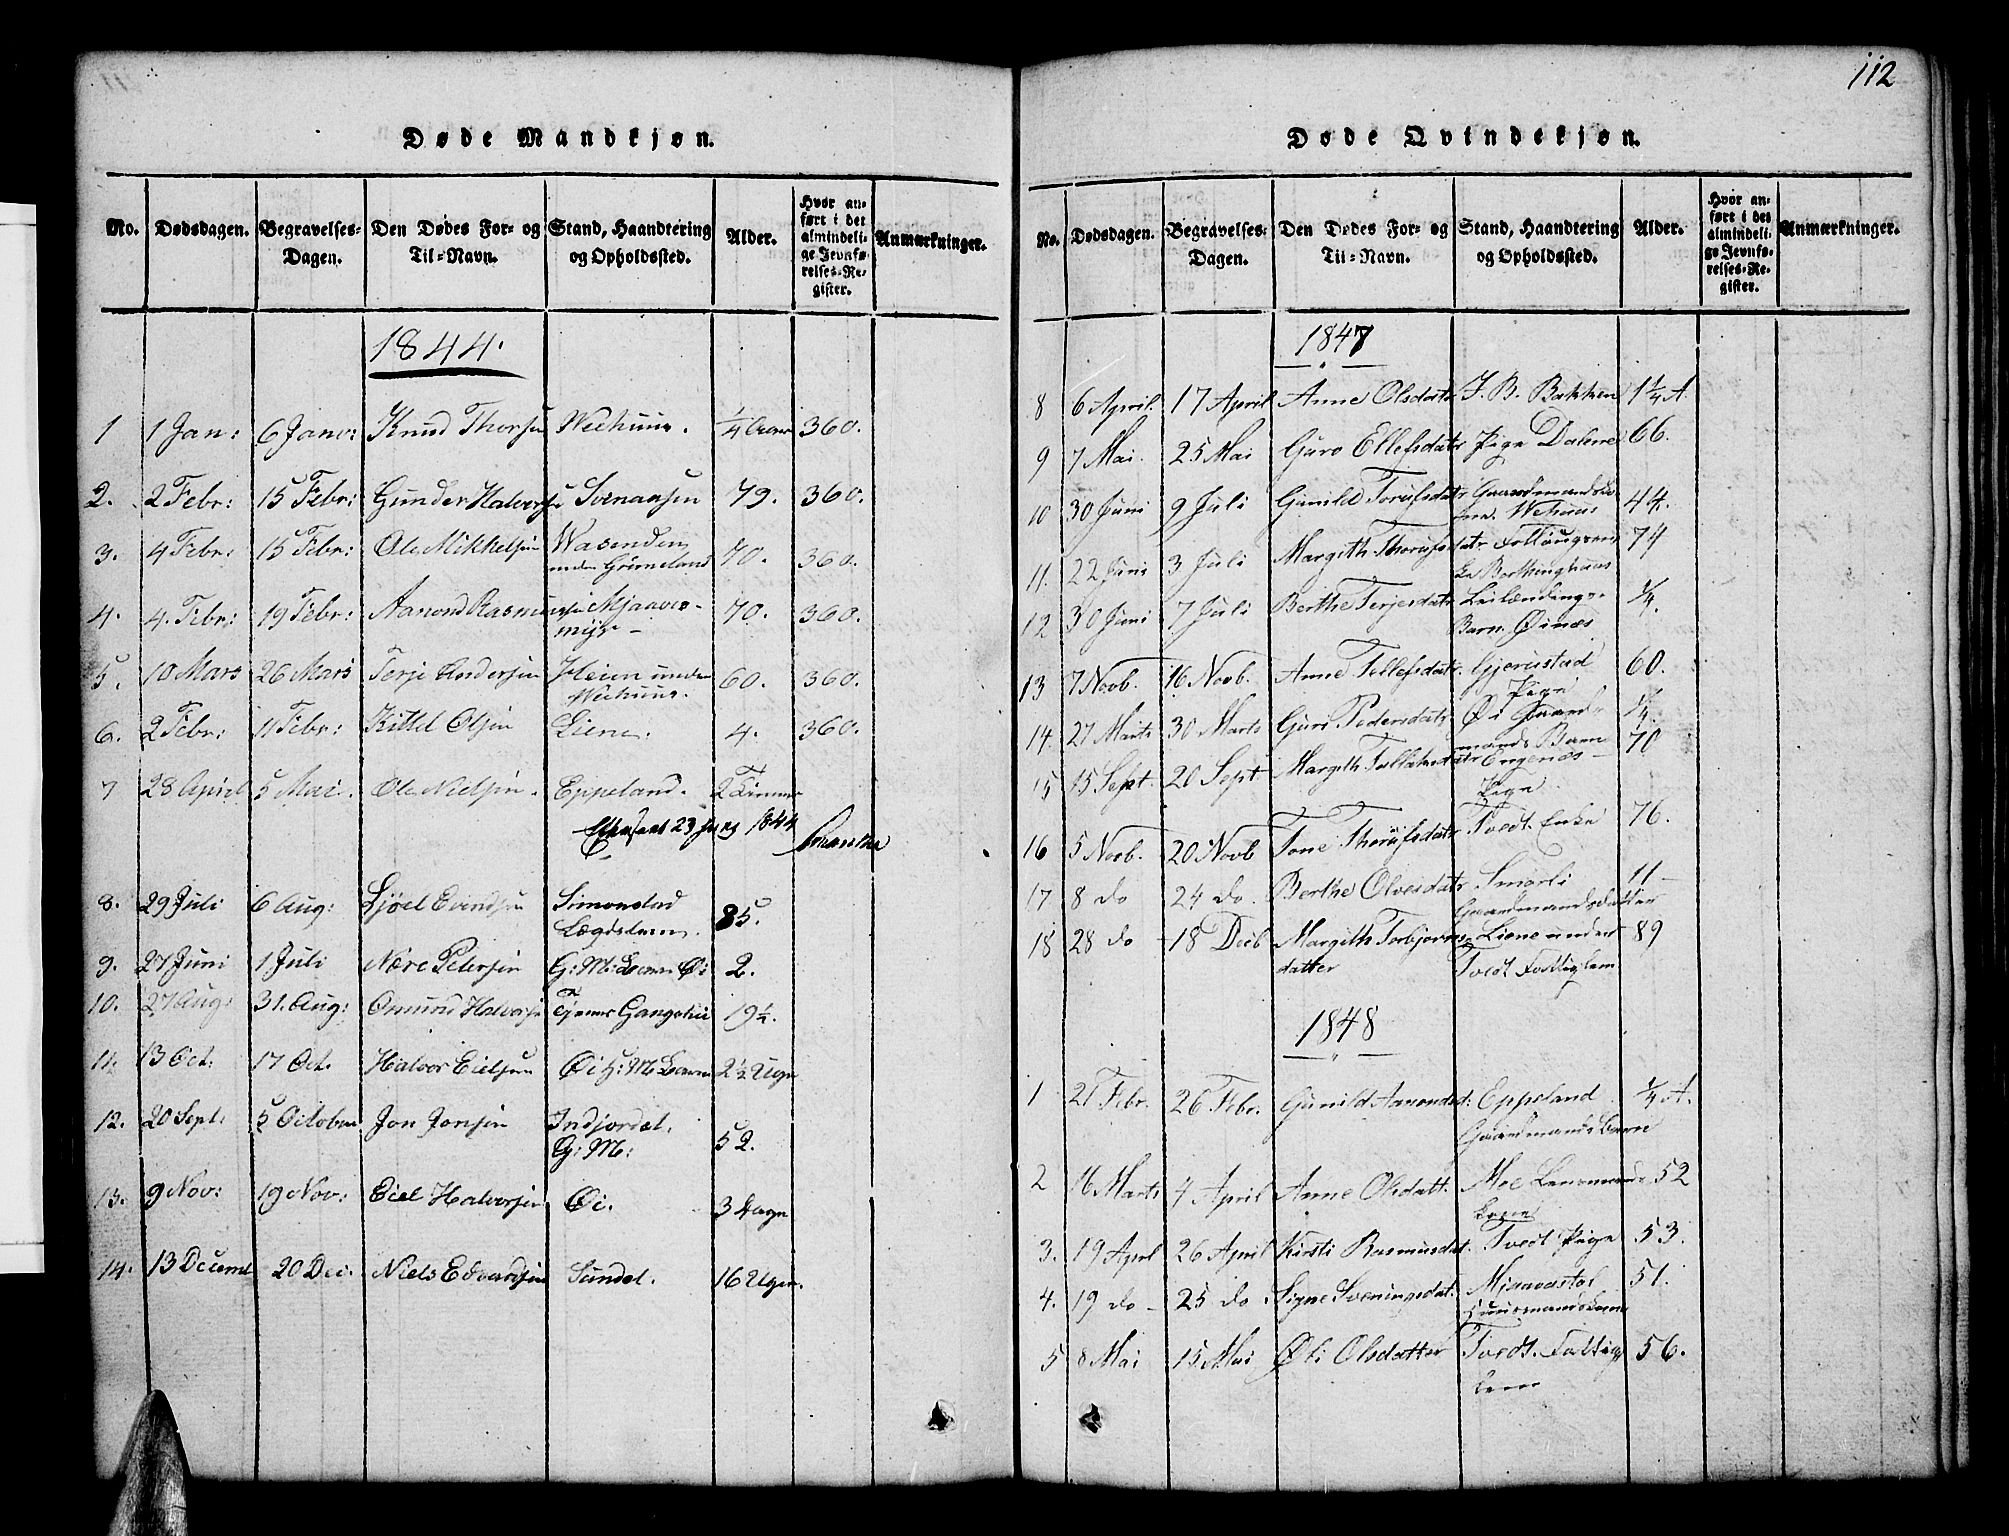 112
Døde Mandkjøn.
No. Dødsdagen. Begravelses-Dagen. Den Dødes For- og Til-Navn. Stand, Haandtering og Opholdssted. Alder. Hvor anført i det almindelige Jevnførelses-Register. Anmærkninger.
1844.
1 1 Jan: 6 Janv: Knud Thorsen Weehuus. 1/4 Aar 360.
2. 2 Febr: 15 Febr: Gunder Halvorsen Svenaasen 79. 360.
3. 4 Febr: 15 Febr: Ole Mikkelsen Wasenden
under Grimeland 70. 360.
4. 4. Febr: 19 Febr: Aanond Rasmussen Mjaavas-
myr- 70. 360.
5. 10 Mars 26 Mars Terje Andersen Heien under
Weehuus. 60. 360.
6. 2 Febr: 11 Febr: Kittel Olsen Liene. 4. 360.
7 28 April 5 Mai. Ole Nielsen. Eppeland. 2 Timer
23 1844
8. 29 Juli 6 Aug: Ljøel Evendsen Simonstad
Lægdslem. 85.
9. 27 Juni 1 Juli Nære Petersen G: M: Barn Øi 2.
10. 27 Aug: 31. Aug: Omund Halvorsen Gangskii 19½.
11. 13 Oct. 17 Oct. Halvor Eielsen Øi G: M Barn 2½ Uger
12. 20 Sept. 5 October Jon Jonsen Indjordal.
G: M: 52.
13. 9 Nov: 19 Nov: Eiel Halvorsen Øi. 3 Dage
14. 13 Decemb 20 Dec. Niels Edvardsen Sundet. 16 Uger.
Døde Qvindekjøn.
No. Dødsdagen. Begravelses-Dagen. Den Dødes For- og Til-Navn. Stand, Haandtering og Opholdssted. Alder. Hvor anført i det almindelige Jevnførelses-Register. Anmærkninger.
1847
8 6 April. 17 April Anne Olsdatr J. B. Bakken 1¼ A.
9 7 Mai. 25 Mai Guro Ellefsdatr Pige Dalene 66.
10 30 Juni 9 Juli Gunild Torufsdatr Gaardmandsko
ne. Wehuus 44.
11. 22 Juni 3 Juli Margith Thorufsdatr Fattig
74
12 30 Juni 7 Juli Berthe Terjesdatr Leilændings-
Barn. Øinæs ¼.
13 7 Novb. 16 Novb. Anne Tellefsdatr. Gjerustad
Pige 60.
14. 27 Marts 30 Marts Guro Pedersdatr Øi Gaard-
mands Barn ¼.
15 15 Sept. 20 Sept. Margith Tallaksdatr Engenæs-
Pige 70
16 5 Novb. 20 Novb Tone Thorüfsdatr Tvedt. Enke 76.
17 8 do 24 do. Berthe Olvesdatr Smørli
Gaardmandsdatter 11-
18 28 do - 18 Decb Margith Torbjørns-
datter Liene under
Tvedt Fattiglem 89
1848
1 21 Febr. 26 Febr. Gunild Aanondsd: Eppeland
Gaardmands Barn ¼ A.
2 16 Marts 4 April Anne Olsdatt. Moe Lensmands
kone 52
3. 19 April 26 April Kirsti Rasmusdat. Tvedt Pige 53.
4. 19 do - 25 do Signe Sveningsdat. Mjaavastøl
Huusmandskone 51.
5 8 Mai 15 Mai Øli Olsdatter Tvedt. Fattig
lem 56.